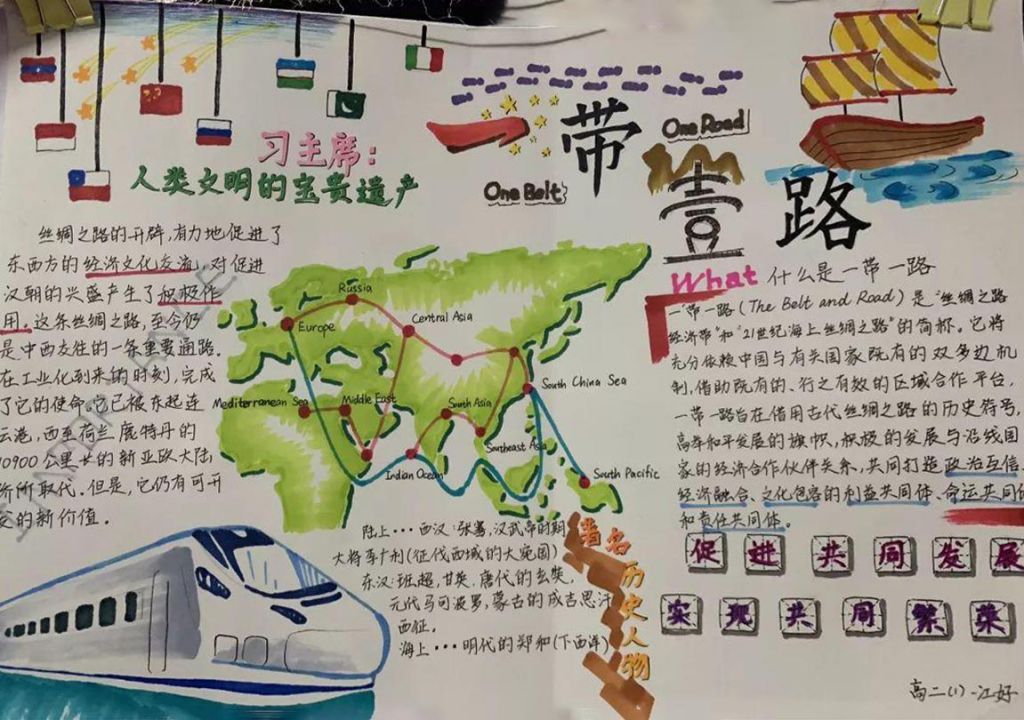 一带
One Road
One Belt
壹路
习主席：
人类文明的宝贵遗产
丝绸之路的开辟,有力地促进了
东西方的经济文化交流,对促进
汉朝的兴盛产生了积极作
用。这条丝绸之路,至今仍
是中西交往的一条重要通路。
在工业化到来的时刻,完成
了它的使命。它已被东起连
云港,西至荷兰鹿特丹的
10900公里长的新亚欧大陆
桥所取代.但是,它仍有可开
发的新价值。
Russia
Europe
Central Asia
South China Sea
Mediterranean Sea
Middle East
South Asia
Southeast Asia
Indian Ocean
South Pacific
What 什么是一带一路
一带一路(The Belt and Road)是"丝绸之路
经济带"和"21世纪海上丝绸之路"的简称。它将
充分依赖中国与有关国家既有的双多边机
制,借助既有的、行之有效的区域合作平台,
一带一路旨在借用古代丝绸之路的历史符号,
高举和平发展的旗帜,积极的发展与沿线国
家的经济合作伙伴关系,共同打造政治互信、
经济融合、文化包容的利益共同体、命运共同体
和责任共同体。
促进共同发展
实现共同繁荣
著名历史人物
陆上···西汉:张骞,汉武帝时期
大将李广利(征伐西域的大宛国)
东汉:班超,甘英.唐代的玄奘,
元代马可波罗,蒙古的成吉思汗
西征。
海上···明代的郑和(下西洋)
高二(1)-江好